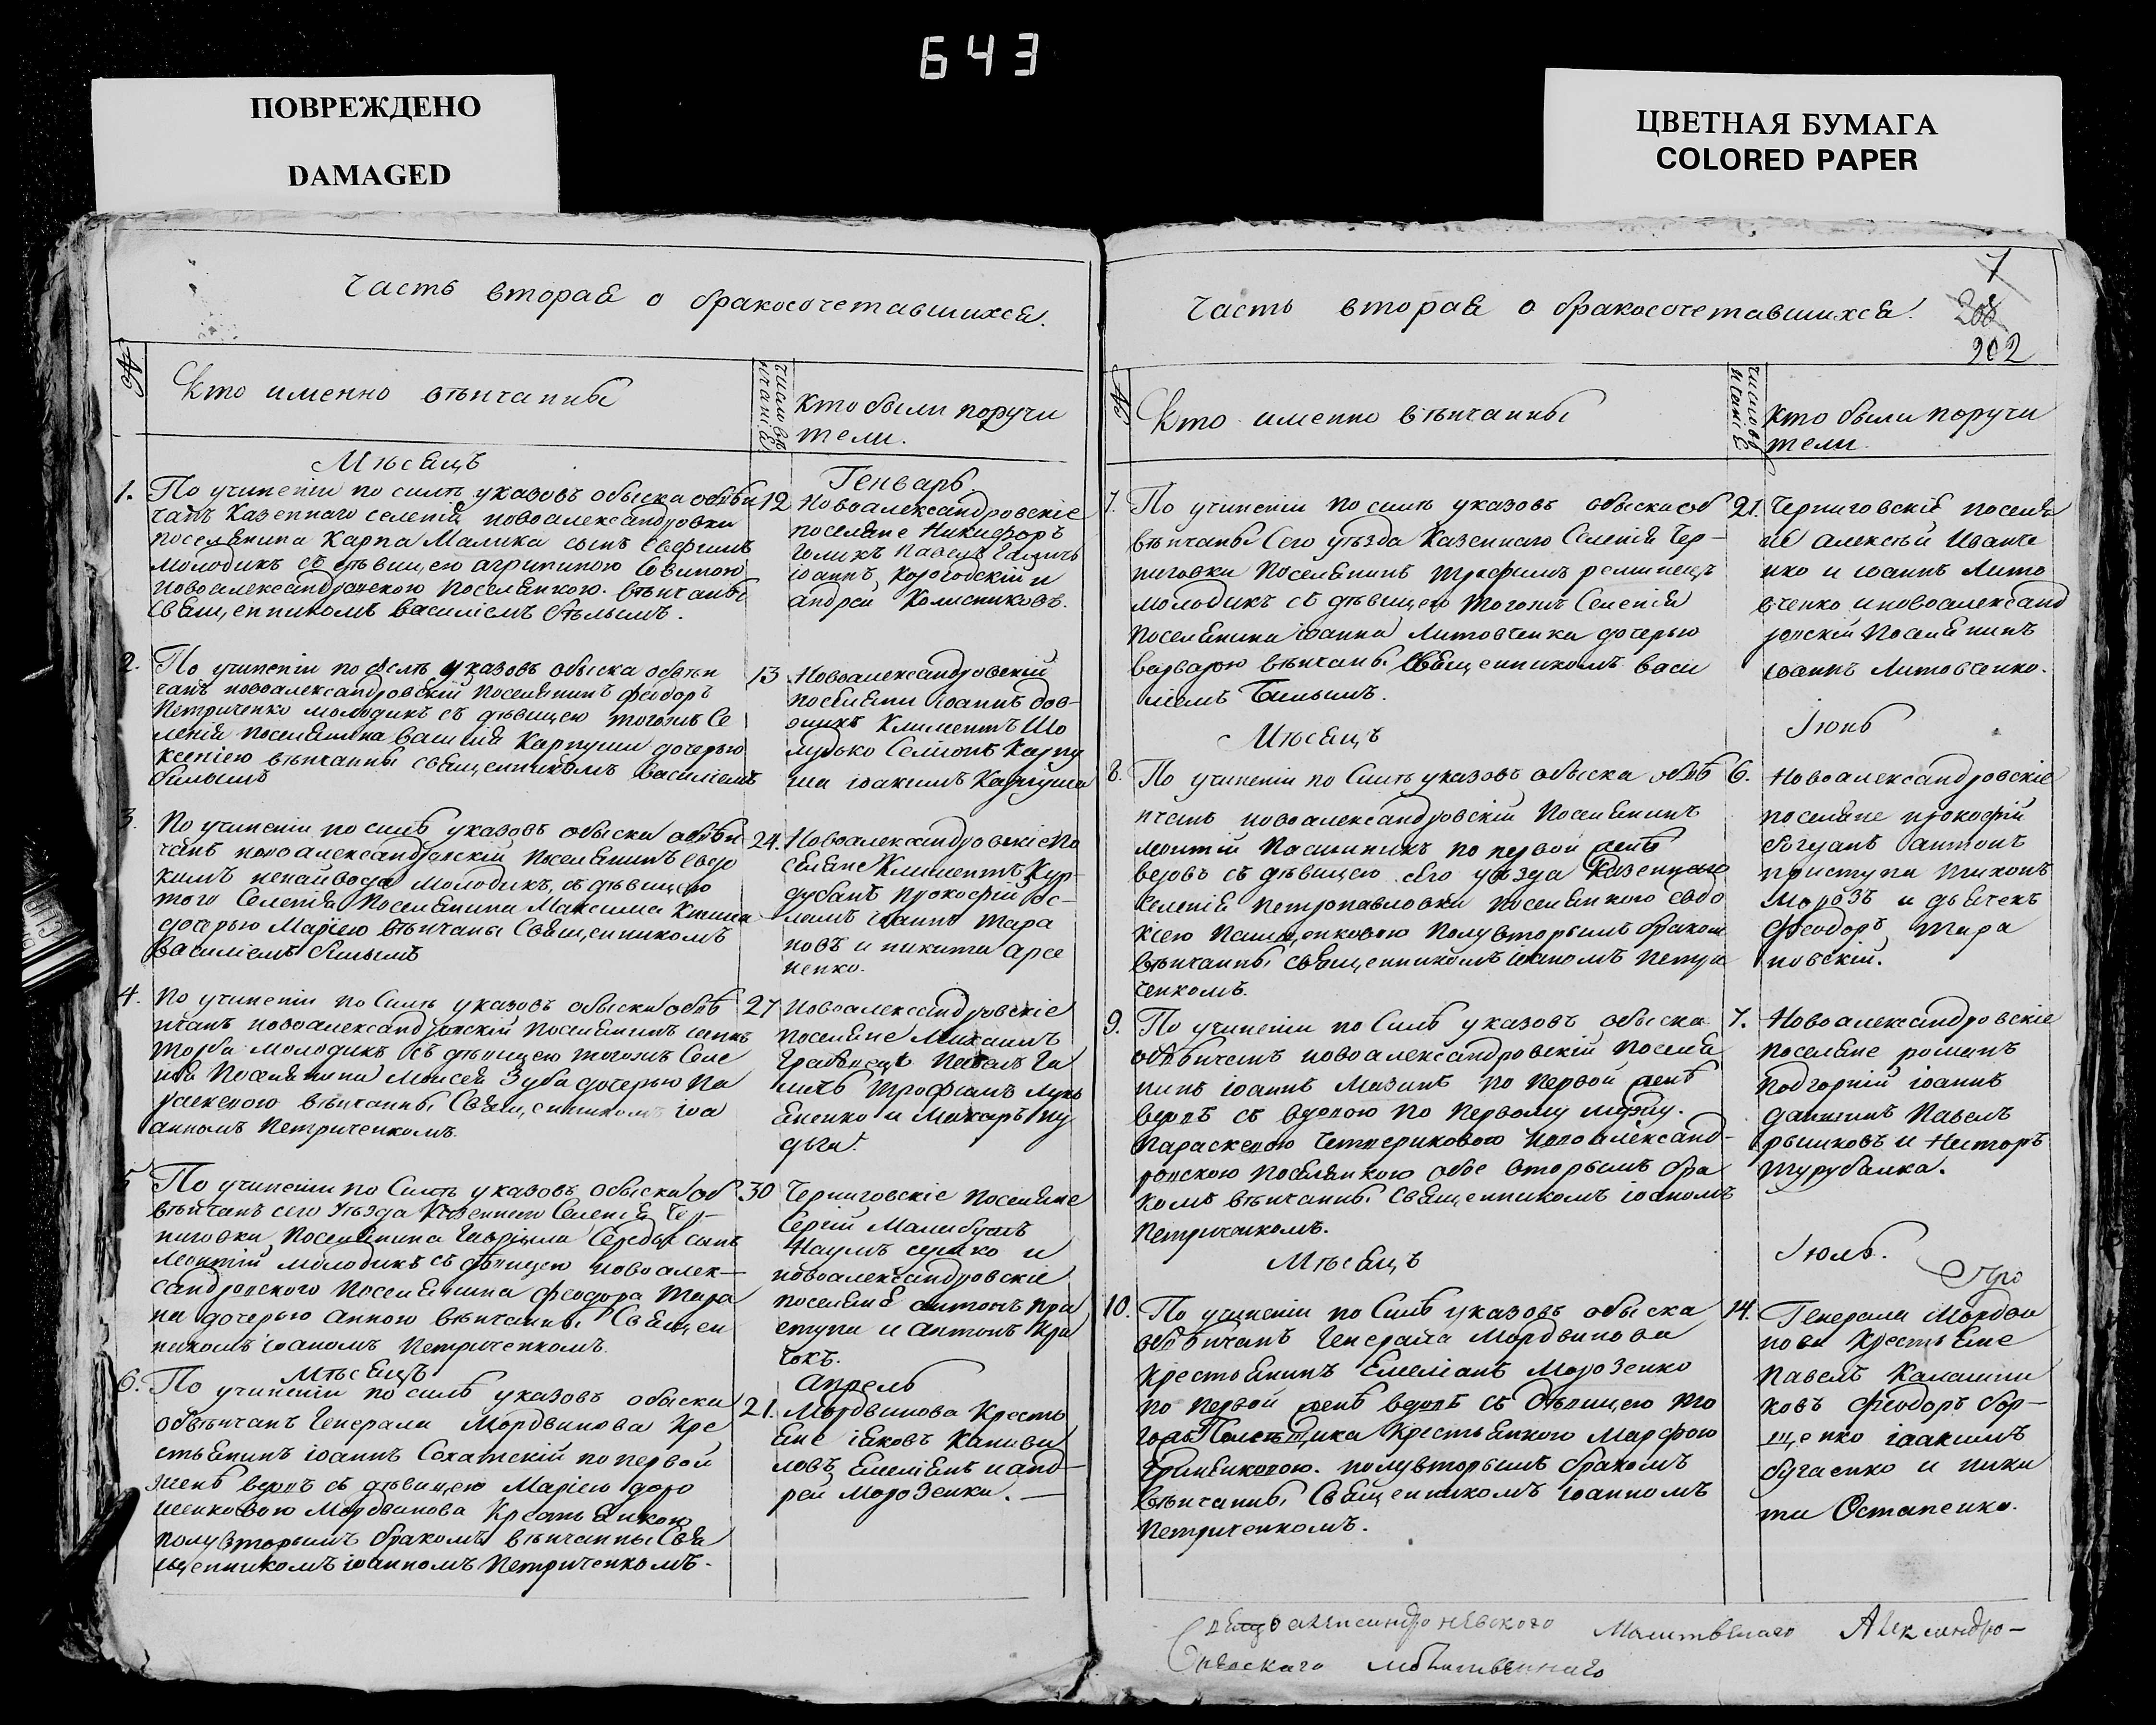 643
ПОВРЕЖДЕНО
DAMAGED
ЦВЕТНАЯ БУМАГА
COLORED PAPER
Часть вторая о бракосочетавшихся.
№
Кто именно вѣнчанны
число вѣ
нчанія
кто были поручи
тели.
Мѣсяцъ
Генварь
1. По учиненіи по силѣ указовъ обыска обвѣн
чанъ казенного селенія новоалександровки
поселянина Карпа Малика сынъ Евфимъ
молодикъ съ дѣвицею агрипиною
новоалександровскою поселянкою. вѣнчаны
священникомъ василіемъ бѣлымъ.
12
Новоалександровскіе
поселяне Никифоръ
Голикъ Павелъ
іоаннъ Корогодскій и
андрей Колисниковъ.
2. По учиненіи по силѣ указовъ обыска обвѣн
чанъ новоалександровскій поселянинъ феодоръ
Петриченко молодикъ съ дѣвицею тогожъ Се
ленія поселянина василія Карпуши дочерью
ксеніею вѣнчанны священникомъ василіемъ
бѣлымъ
13
Новоалександровскій
поселяни іоаннъ дов-
Климентъ Шо
лудько Семіонъ Карпу
ша іоакимъ Карпуша
3. По учиненіи по силѣ указовъ обыска обвѣн
чанъ новоалександровскій поселянинъ евдо
кимъ молодикъ, съ дѣвицею
того Селенія поселянина Максима
дочерью Маріею вѣнчаны Священникомъ
василіемъ бѣлымъ
24.
Новоалександровскіе по
селяне Климентъ Кур-
дубанъ прокофій Ос-
іоаннъ тара
новъ и никита арсе
ненко.
4. По учиненіи по Силѣ указовъ обыска обвѣ
нчанъ новоалександровскій поселянинъ іоаннъ
Торба молодикъ съ дѣвицею тогожъ Селе
нія поселянина Моисея Зуба дочерью Па
раскевою вѣнчанны Священникомъ іоа
анномъ Петриченкомъ.
27
Новоалександровскіе
поселяне Михаилъ
Павелъ Га
личъ Трофимъ Лукь
яненко и Макаръ
5 По учиненіи по Силѣ указовъ обыска об
вѣнчанъ сего уѣзда Казенного Селенія Чер-
ниговки Поселянина Гаврыла Середы сынъ
Леонтій молодикъ съ дѣвицею новоалек-
сандровского Поселянина Феодора Тара
на дочерью анною вѣнчанны Священ
никомъ іоаномъ Петриченкомъ.
30
Черниговскіе поселяне
Сергій
Наумъ и
новоалександровскіе
поселяне антонъ при
ступа и антонъ Кра
Мѣсяцъ
Апрель
6. По учиненіи по силѣ указовъ обыска
обвѣнчанъ Генерала Мордвинова Кре
стьянинъ іоаннъ Сохатскій по первой
женѣ вдовъ съ дѣвицею Маріею доро
шенковою Мордвинова Крестьянкою
полувторымъ бракомъ вѣнчанны Свя
щенникомъ іоанномъ Петриченкомъ.
21.
Мордвинова Кресть
яне іаковъ Канива
ловъ Емеліянъ и анд-
рей Морозенки.
Часть вторая о бракосочетавшихся.
202
№
Кто именно вѣнчанны
число вѣ
нчанія
кто были поручи
тели.
7. По учиненіи по силѣ указовъ обыска об
вѣнчаны Сего уѣзда Казенного Селенія Чер-
ниговки Поселянинъ Трофимъ ременецъ
молодикъ съ дѣвицею тогожъ Селенія
поселянина іоанна Литовченка дочерью
варварою вѣнчаны Священникомъ васи
ліемъ Бѣлымъ.
21.
Черниговскіе поселя
не алексѣй Иванче
нко и іоаннъ Лито
вченко и новоалександ
ровскій поселянинъ
іоаннъ Литовченко.
Мѣсяцъ
Іюнь
8. По учиненіи по Силѣ указовъ обыска обвѣ
нчанъ новоалександровскій Поселянинъ
леонтій Пасишникъ по первой женѣ
вдовъ съ дѣвицею сего уѣзда Казенного
селенія петропавловки поселянкою Евдо
кіею полувторымъ бракомъ
вѣнчанны священникомъ іоаномъ петри
ченкомъ.
6.
Новоалександровскіе
поселяне прокофій
антонъ
приступа тихонъ
морозъ и дьячекъ
Феодоръ Тара
новскій.
9. По учиненіи по Силѣ указовъ обыска
обвѣнчанъ новоалександровскій поселя
нинъ іоаннъ Мазинъ по первой женѣ
вдовъ съ вдовою по первому мужу.
Параскевою Четвериковою новоалександ-
ровскою поселянкою обое вторымъ бра
комъ вѣнчанны священникомъ іоаномъ
Петриченкомъ.
7.
Новоалександровскіе
поселяне романъ
подгорній іоаннъ
Павелъ
рышковъ и Нестеръ
Мѣсяцъ
Іюль.
10. По учиненіи по Силѣ указовъ обыска
обвѣнчанъ Генерала Мордвинова
крестьянинъ Емеліанъ Морозенко
по первой женѣ вдовъ съ дѣвицею то
гожъ Помѣщика Крестьянкою Марфою
полувторымъ бракомъ
вѣнчанны Священникомъ іоанномъ
Петриченкомъ.
14.
Генерала Мордви
нова Крестьяне
Павелъ Калашни
ковъ Феодоръ бор-
щенко іоакимъ
бугаенко и ники
та Остапенко.